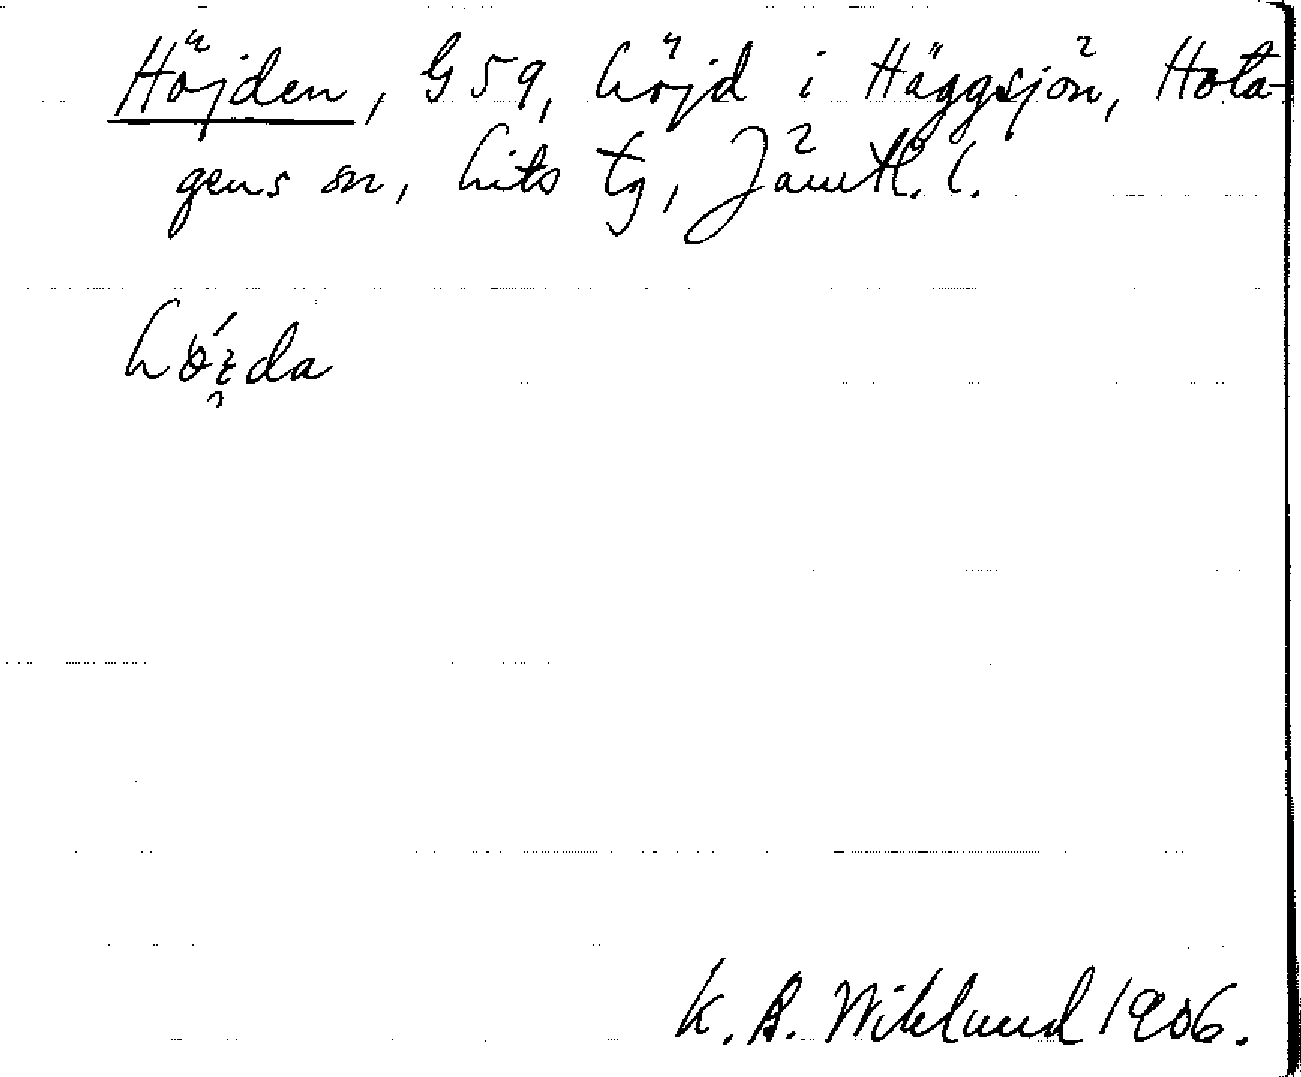 Höjden, G 59, höjd i Häggsjön, Hota-
gens sn, Lits tg, Jämtl. l.
K. B. Wiklund 1906.